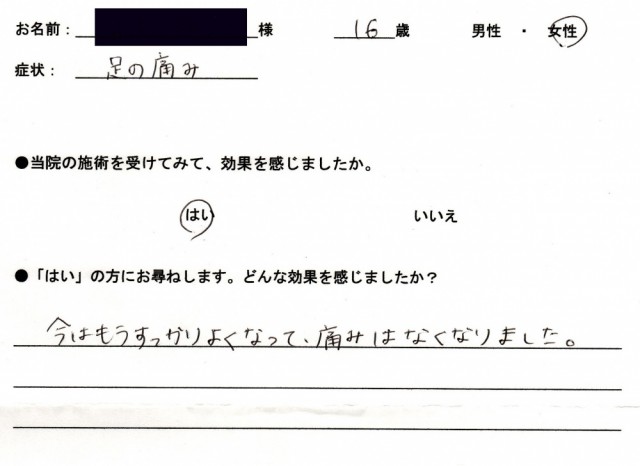 お名前： 様 16 歳 男性 ・ 女性
症状： 足の痛み
●当院の施術を受けてみて、効果を感じましたか。
はい いいえ
●「はい」の方にお尋ねします。どんな効果を感じましたか？
今はもうすっかりよくなって、痛みはなくなりました。